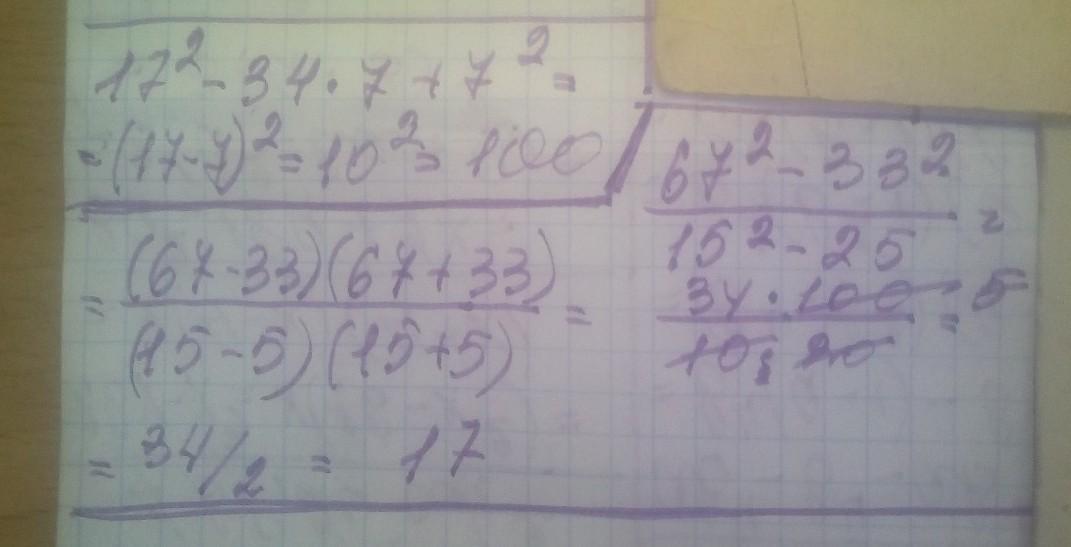 17² - 34 · 7 + 7² =
= (17-7)² = 10² = 100
67² - 33²
15² - 25 =
= (67-33)(67+33)
(15-5)(15+5) =
34 · 100 5
10 · 20 =
= 34/2 = 17